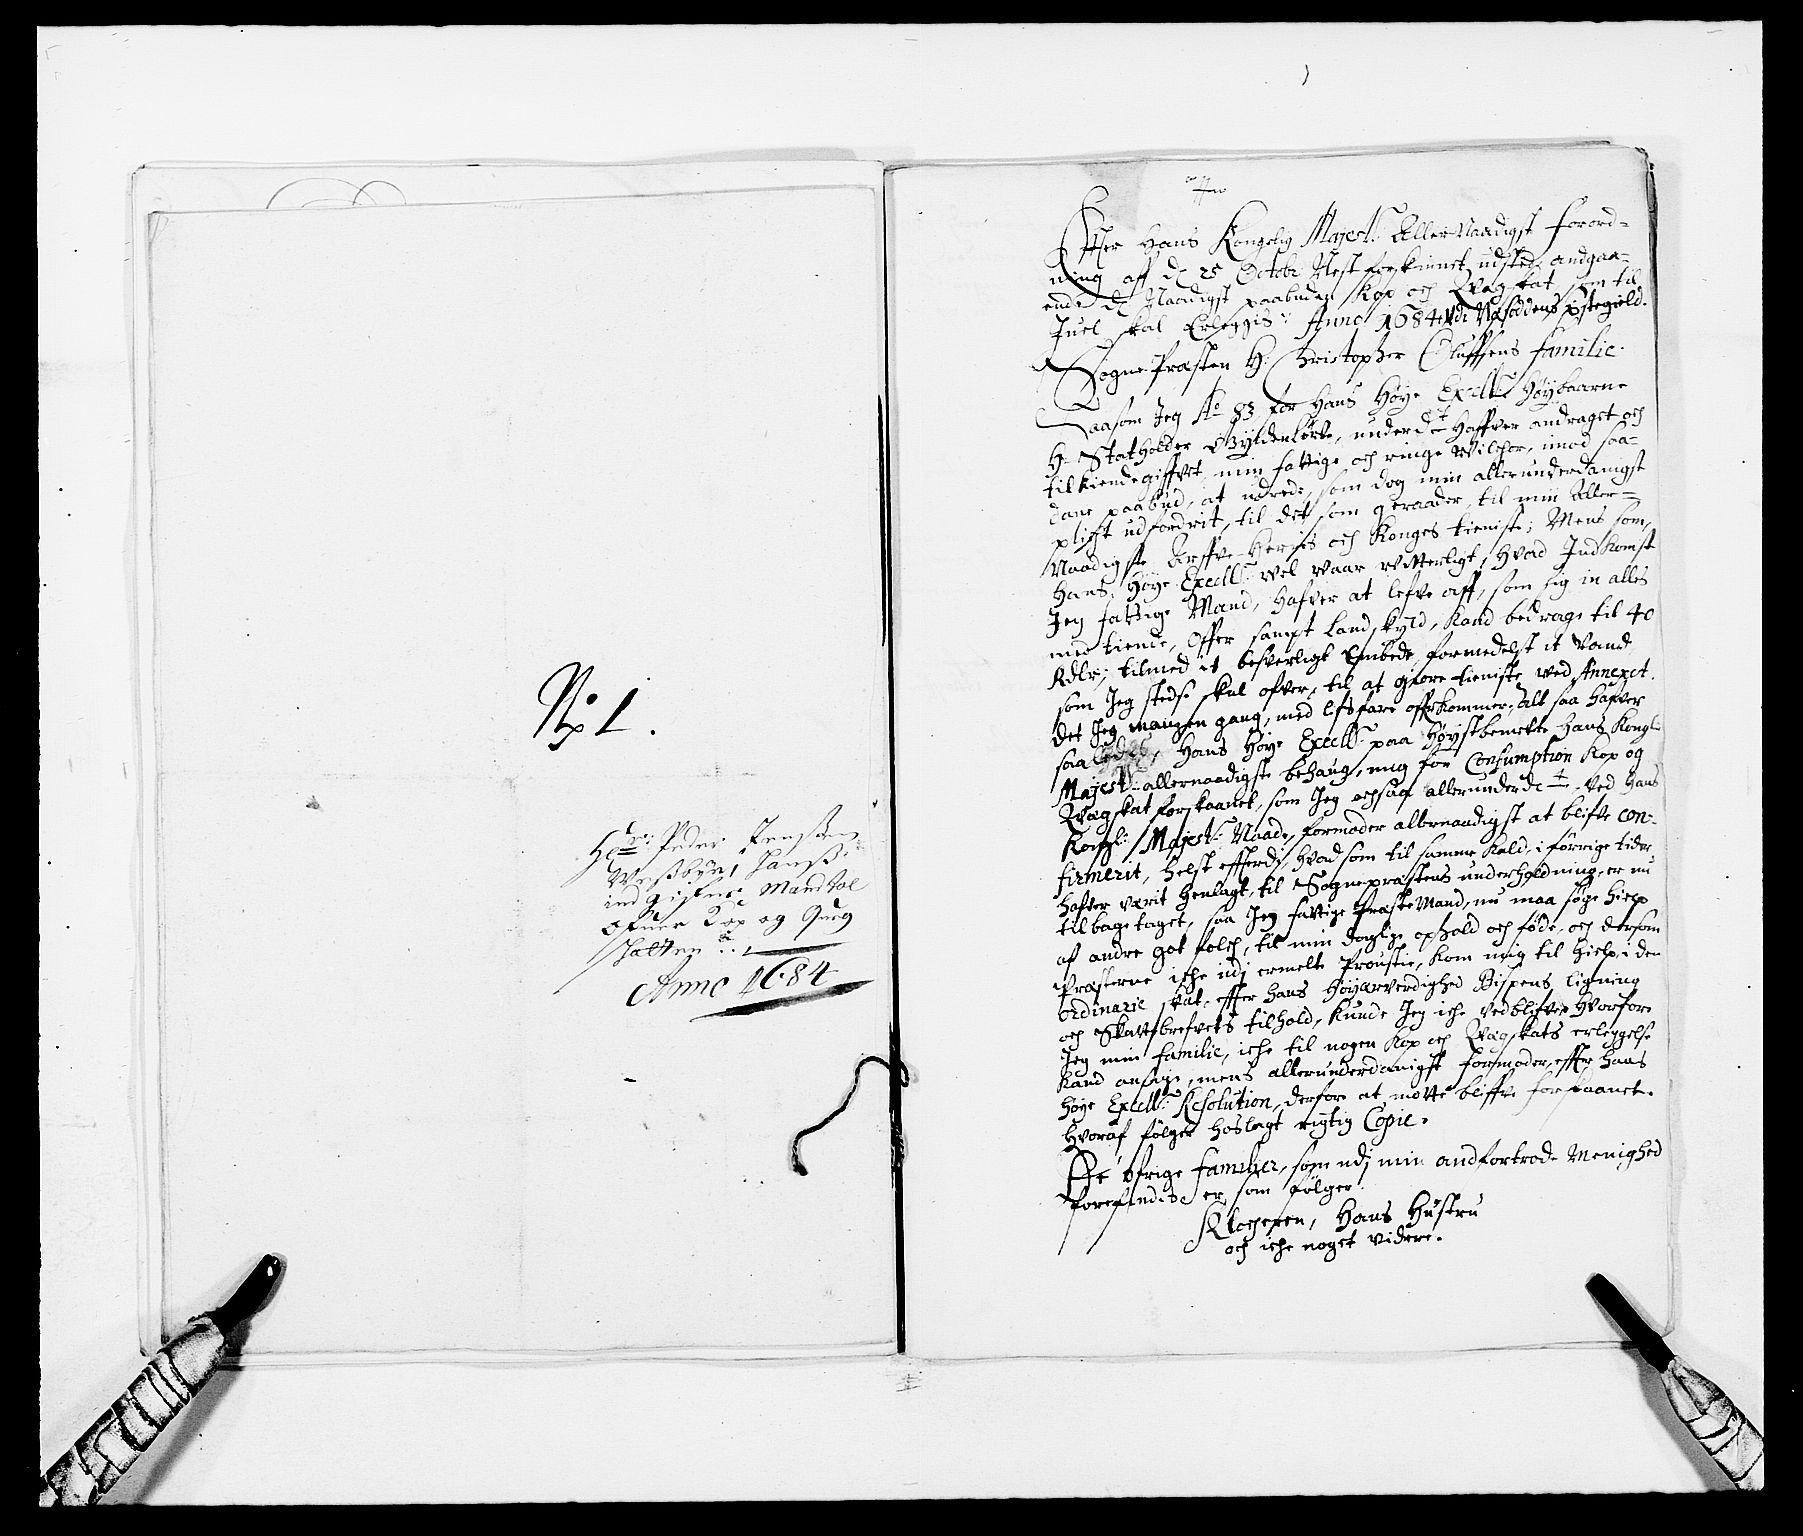 No 1.
Hr: Peder Jenssen
Westbÿe, hanß
indgifne Mandtal
ofuer Kop og Queg
skatten
Anno 1684
Effter Hans Kongelig Majest: Aller Naadigst Forord-
ning aff de 25 Octobr: Nest forskinnet udsted, andgaa-
ende de Naadigst paabuden Kop och Qvegskat, som til
Juel skal Erleggis: Anno 1684 udi Næsoddens pstegield.
Sogne Præsten H: Christopher Oluffsens familie.
Saasom Jeg Ao 83 for Hans Høÿe Excell: Høÿbaarne
H: Statholder Gÿldenløwe, underd: Haffver andraget och
tilkiendegiffvet, min fattige och ringe Wilchor, imod saa-
dant paabud, at udrede, som dog min allerunderdanigst
plict udfordrit, til det som geraader, til min Aller-
Naadigste Arffve-Herris och Konges tieniste; Mens som
Hans Høÿe Excell: wel waar witterligt, Hvad Indkomst
Jeg fattige Mand, Hafver at lefve aff, som sig in alles
med tiende, Offer sampt Landskÿld, Kand bedrage til 40
Rdlr; tilmed it besverligt Embede, formedelst it Vand
som Jeg stedse skal ofver, til at giøre tieniste ved Annexet.
det Jeg mangen gang, med lifsfare offrkommer; Alt saa hafver
saaledes, Hans Høÿe Excell: paa Høÿstbemelte Hans Kongl:
Majest: allernaadigste behaug, mig for Consumption Kop og
Qvegskat forskaanet, som Jeg ochsaa allerunderd: ved Hans
Kongl: Majest: Naade, formoder allernaadigst at blifve con-
firmerit, helst efterdj, hvad som til samme Kald, i forrige tider
hafver værit henlagt, til Sognepræstens underholdning, er nu
tilbagetaget, saa Jeg fattige Præste Mand, nu maa søge hielp
af andre got folch, til min daglige ophold och føde, och dersom
Præsterne iche udj ermelte Proustie, kom mig til hielp i den
ordinarie skat, effter Hans Høÿærverdighed Bispens ligning
och Skattebrefvets tilhold, Kunde Jeg iche vedblifve, Hvorfore
Jeg min familie, iche til nogen Kop och Qvegskats erleggelse
Kand ansige, mens allerunderdanigst formoder, effter Hans
høÿe Excell: Resolution, derfore at motte bliffve forskaanet.
Hvoraf følger hoslagt rigtig Copie.
De øfrige familier, som udj min andfortrode Menighed
forefindis er som følger.
Klocheren, Hans Hustru
och iche noget videre.